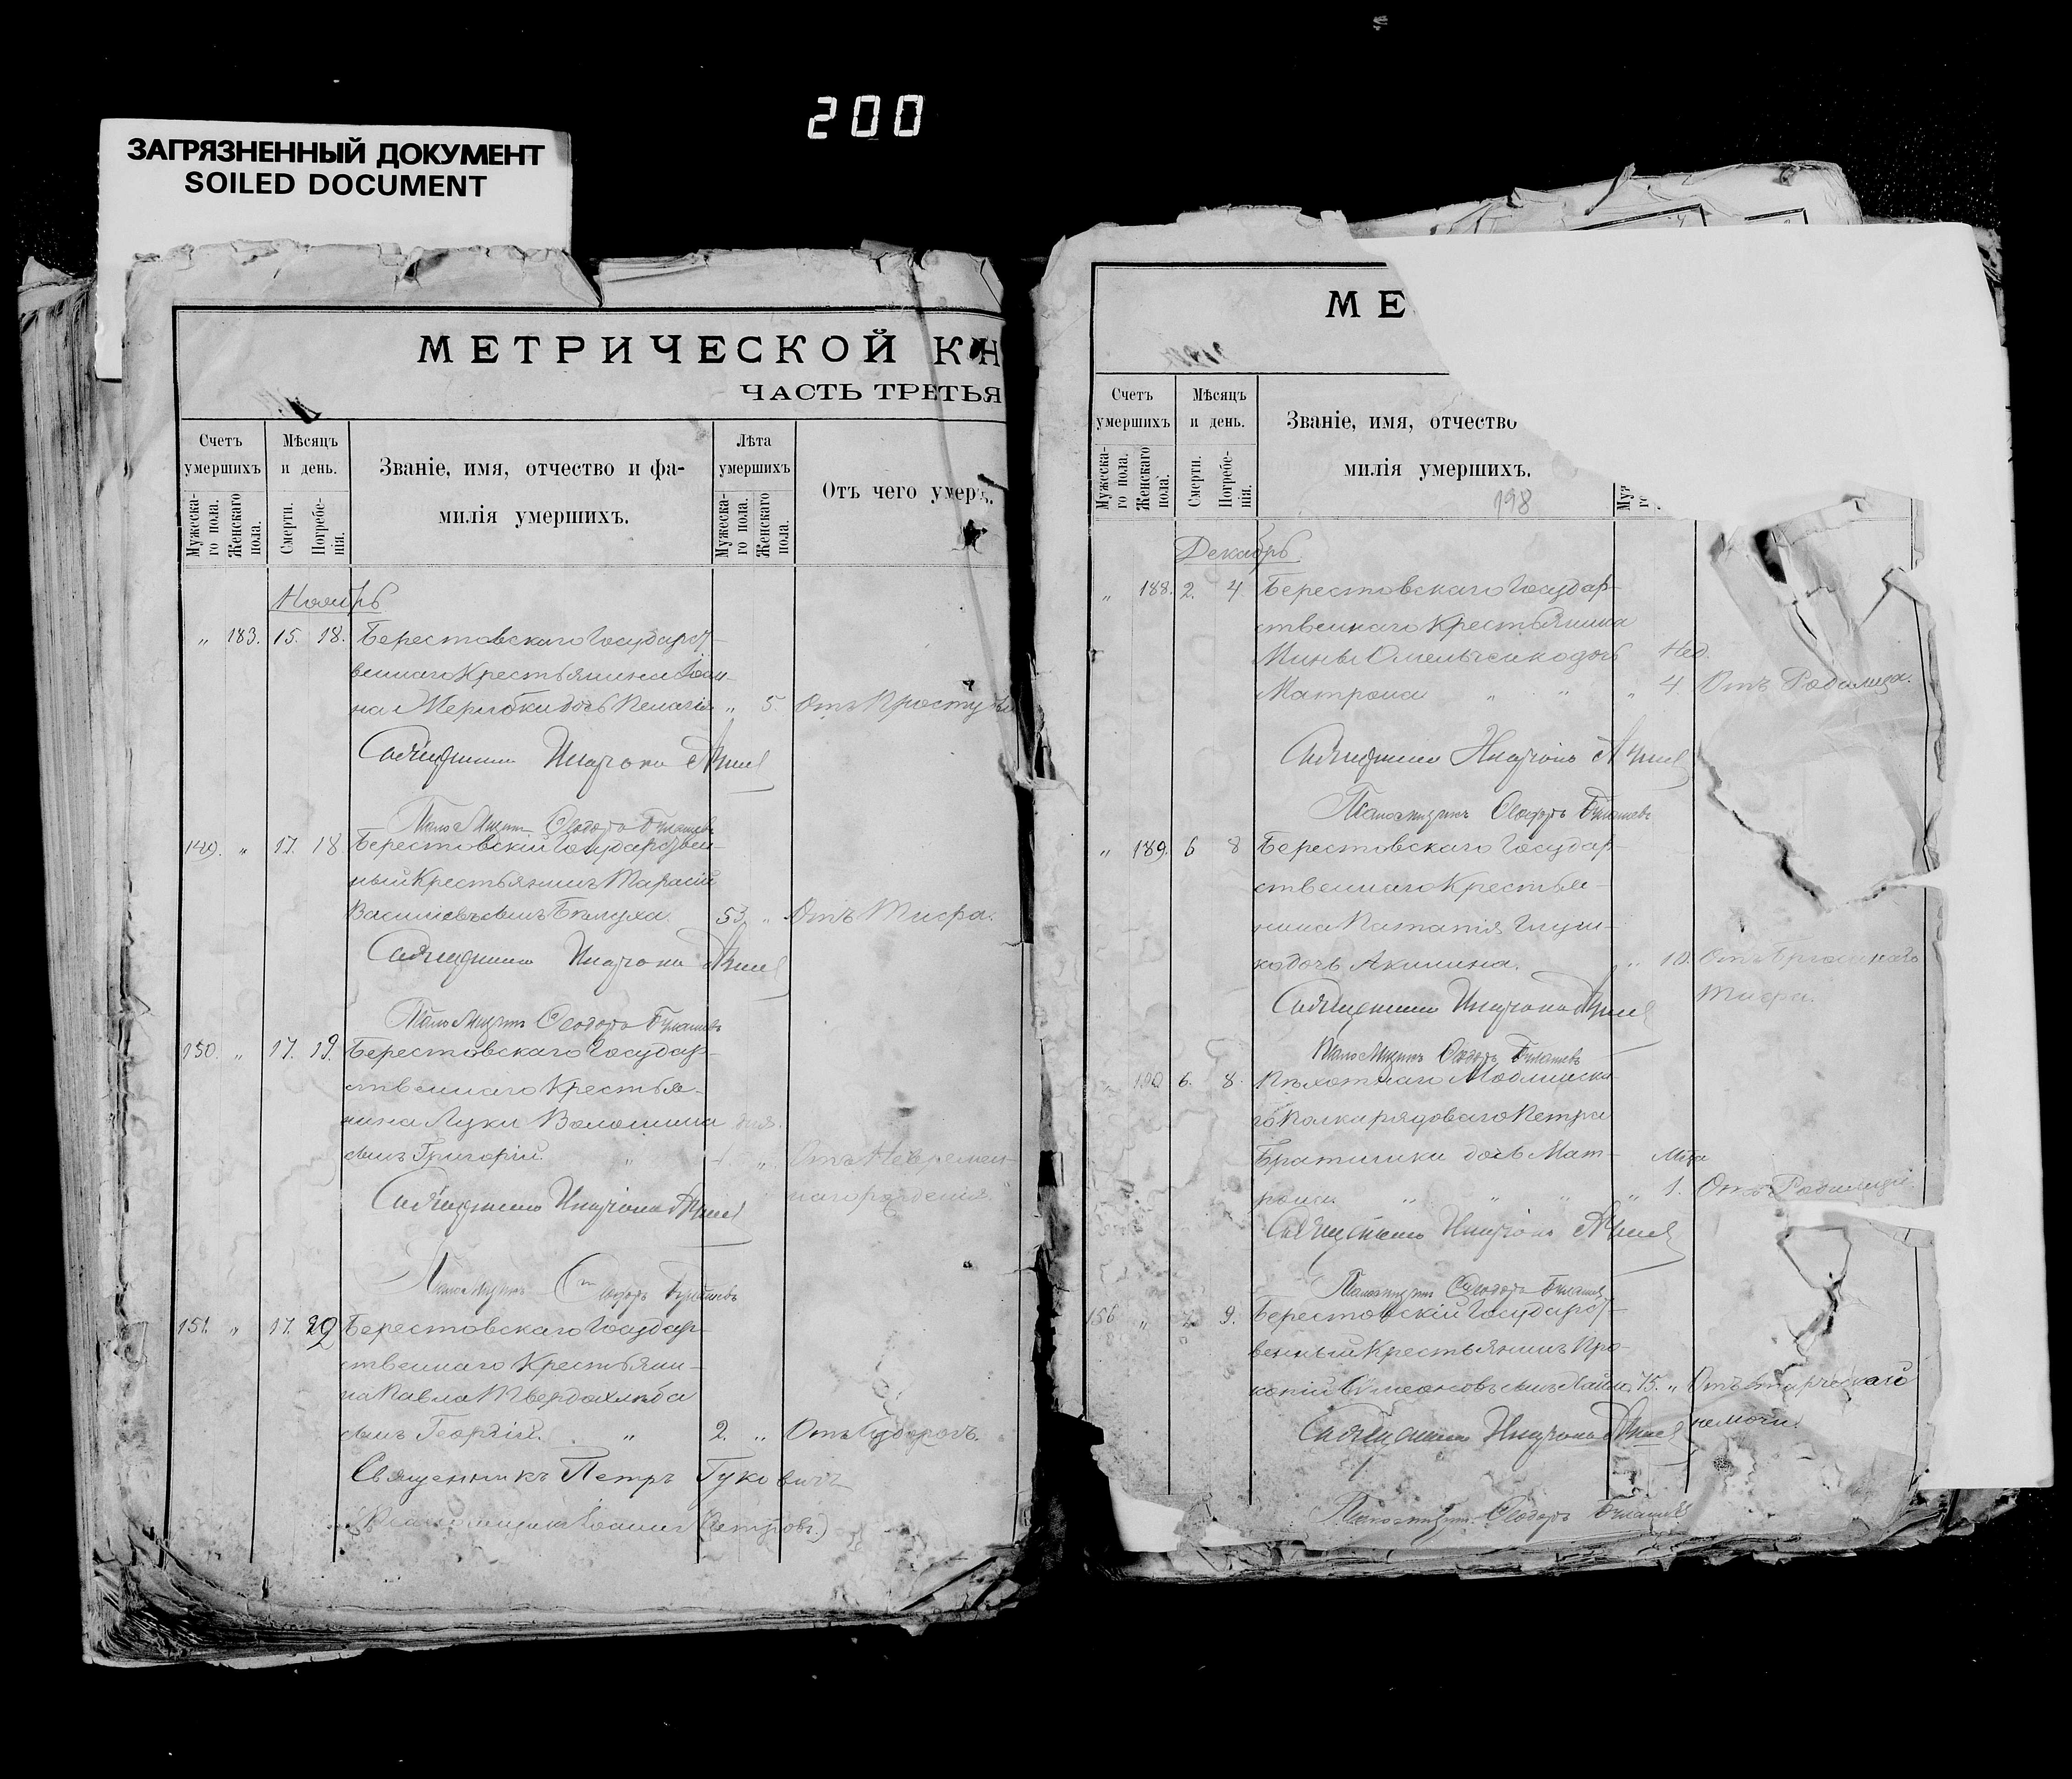 200
ЗАГРЯЗНЕННЫЙ ДОКУМЕНТ
SOILED DOCUMENT
МЕТРИЧЕСКОЙ КН
ЧАСТЬ ТРЕТЬЯ
Счетъ умершихъ
Мужеска-го пола.
Женскаго пола.
Мѣсяцъ и день.
Смерти.
Погребе-нія.
Званіе, имя, отчество и фа-
милія умершихъ.
Лѣта умершихъ
Мужеска-го пола.
Женскаго пола.
Отъ чего умеръ.
Ноябрь
„ 183. 15. 18. Берестовскаго Государст-
веннаго Крестьянина Іоан-
на дочь Пелагія „ 5. Отъ Простуды
Священникъ
Псаломщикъ Ѳеодоръ
149. „ 17. 18 Берестовскій Государствен-
ный Крестьянинъ Тарасій
Васильевъ сынъ Бѣлуха. 53. „ Отъ Тифа.
Священникъ
Псаломщикъ Ѳеодоръ
150. „ 17. 19. Берестовскаго Государ-
ственнаго Крестья-
нина Луки Волошина дня.
сынъ Григорій. „ „ Отъ Невремен-
наго рожденія.
Священникъ
Псаломщикъ Ѳеодоръ
151. „ 17. 29 Берестовскаго Государ-
ственнаго Крестьяни-
на Павла Твердохлѣба
сынъ Георгій. „ 2. „ Отъ Судорогъ.
Священникъ Петръ Гуковичъ
Псаломщикъ Іоаннъ (Петровъ.)
МЕ
Счетъ умершихъ
Мужеска-го пола.
Женскаго пола.
Мѣсяцъ и день.
Смерти.
Погребе-нія.
Званіе, имя, отчество
милія умершихъ.
198
Декабрь
„ 188. 2. 4. Берестовскаго Государ-
ственнаго Крестьянина
Мины Омельченко дочь Нед.
Матрона „ „ „ 4. Отъ Родимца.
Священникъ
Псаломщикъ Ѳеодоръ
„ 189. 6 8 Берестовскаго Государ-
ственнаго Крестья-
нина Игнатія Глуш-
ко дочь Акилина. „ 10. Отъ Брюшнаго
Тифа.
Священникъ
Псаломщикъ Ѳеодоръ
190 6. 8. Пѣхотнаго Модлинска-
го Полка рядоваго Петра
Братишки дочь Мат- Мѣся
рона. „ „ „ „ 1. Отъ Родимца.
Священникъ
Псаломщикъ Ѳеодоръ
156 „ 9. Берестовскій Государст-
венный Крестьянинъ Про-
копій Симеоновъ сынъ 75. „ Отъ старческаго
немочи.
Священникъ
Псаломщикъ Ѳеодоръ